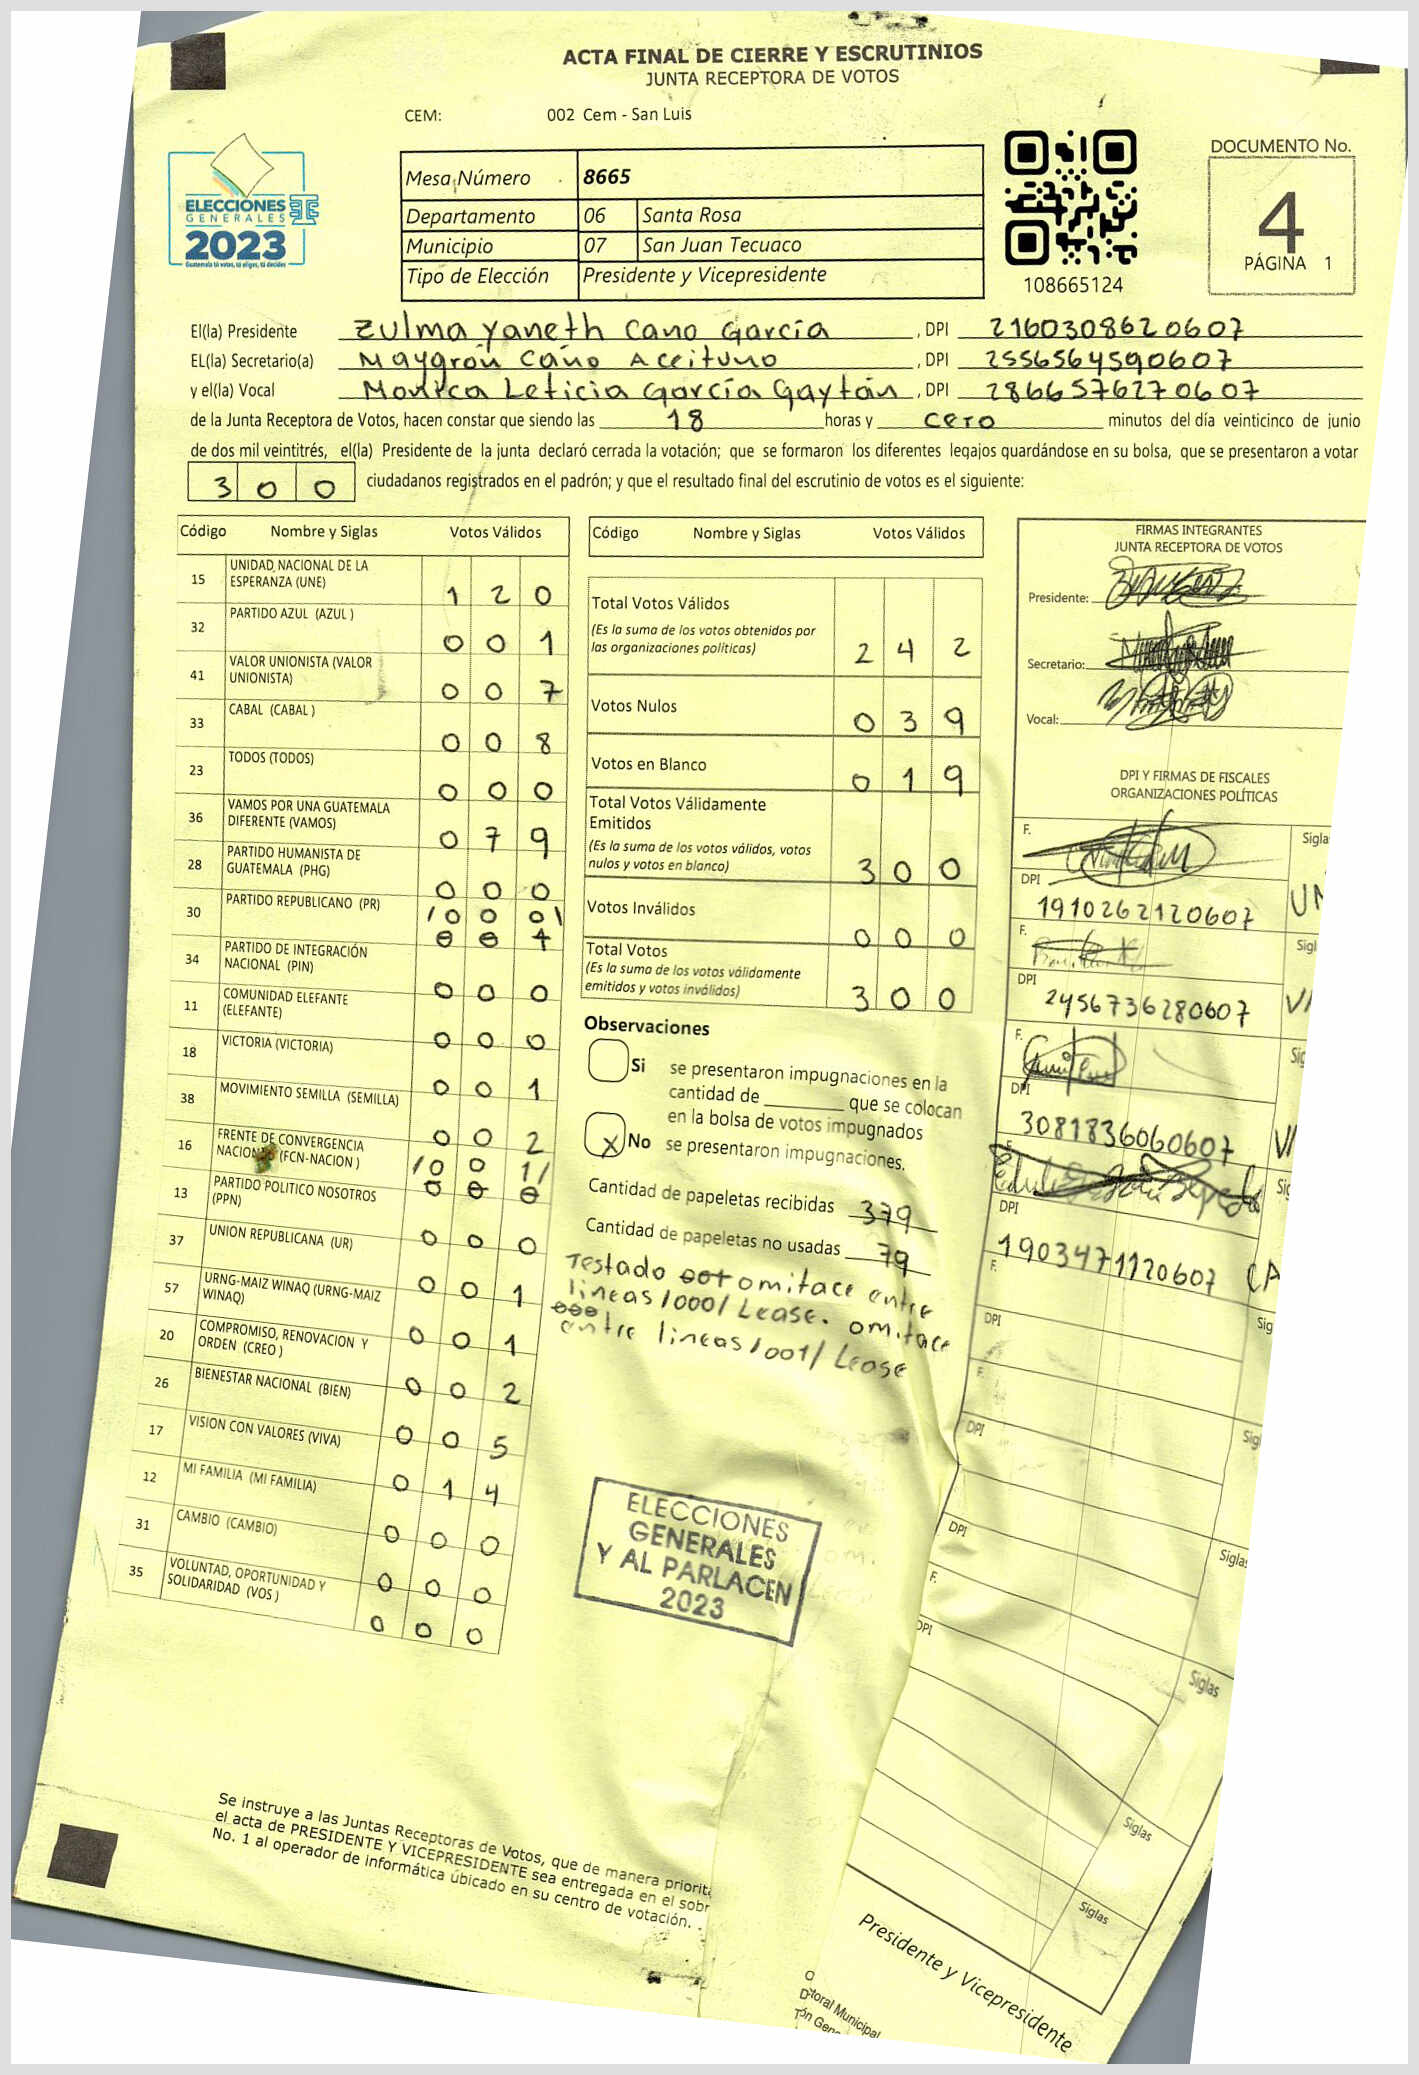 ACTA FINAL DE CIERRE Y ESCRUTINIOS
JUNTA RECEPTORA DE VOTOS
CEM: 002 Cem - San Luis
ELECCIONES
GENERALES
2023
Guatemala tú votas, tú eliges, tú decides
Mesa Número 8665
Departamento 06 Santa Rosa
Municipio 07 San Juan Tecuaco
Tipo de Elección Presidente y Vicepresidente
108665124
DOCUMENTO No.
4
PÁGINA 1
El(la) Presidente Zulma Yaneth Cano García , DPI 2160308620607
EL(la) Secretario(a) Maygron Cano Aceituno , DPI 2556564590607
y el(la) Vocal Monica Leticia García Gaytán , DPI 2866576270607
de la Junta Receptora de Votos, hacen constar que siendo las 18 horas y cero minutos del día veinticinco de junio
de dos mil veintitrés, el(la) Presidente de la junta declaró cerrada la votación; que se formaron los diferentes legajos guardándose en su bolsa, que se presentaron a votar
300 ciudadanos registrados en el padrón; y que el resultado final del escrutinio de votos es el siguiente:
Código Nombre y Siglas Votos Válidos
15 UNIDAD NACIONAL DE LA
ESPERANZA (UNE) 1 2 0
32 PARTIDO AZUL (AZUL ) 0 0 1
41 VALOR UNIONISTA (VALOR
UNIONISTA) 0 0 7
33 CABAL (CABAL ) 0 0 8
23 TODOS (TODOS) 0 0 0
36 VAMOS POR UNA GUATEMALA
DIFERENTE (VAMOS) 0 7 9
28 PARTIDO HUMANISTA DE
GUATEMALA (PHG) 0 0 0
30 PARTIDO REPUBLICANO (PR) /0 0 0\
0 0 1
34 PARTIDO DE INTEGRACIÓN
NACIONAL (PIN) 0 0 0
11 COMUNIDAD ELEFANTE
(ELEFANTE) 0 0 0
18 VICTORIA (VICTORIA) 0 0 1
38 MOVIMIENTO SEMILLA (SEMILLA) 0 0 2
16 FRENTE DE CONVERGENCIA
(FCN-NACION ) /0 0 1/
0 0 0
13 PARTIDO POLITICO NOSOTROS
(PPN) 0 0 0
37 UNION REPUBLICANA (UR) 0 0 1
57 URNG-MAIZ WINAQ (URNG-MAIZ
WINAQ) 0 0 1
20 COMPROMISO, RENOVACION Y
ORDEN (CREO ) 0 0 2
26 BIENESTAR NACIONAL (BIEN) 0 0 5
17 VISION CON VALORES (VIVA) 0 1 4
12 MI FAMILIA (MI FAMILIA) 0 0 0
31 CAMBIO (CAMBIO) 0 0 0
35 VOLUNTAD, OPORTUNIDAD Y
SOLIDARIDAD (VOS ) 0 0 0
Código Nombre y Siglas Votos Válidos
Total Votos Válidos
(Es la suma de los votos obtenidos por
las organizaciones políticas) 2 4 2
Votos Nulos 0 3 9
Votos en Blanco 0 1 9
Total Votos Válidamente
Emitidos
(Es la suma de los votos válidos, votos
nulos y votos en blanco) 3 0 0
Votos Inválidos 0 0 0
Total Votos
(Es la suma de los votos válidamente
emitidos y votos inválidos) 3 0 0
Observaciones
Si se presentaron impugnaciones en la
cantidad de ________ que se colocan
en la bolsa de votos impugnados
X No se presentaron impugnaciones.
Cantidad de papeletas recibidas 379
Cantidad de papeletas no usadas 79
Testado 001 omitace entre
lineas /000/ Lease. omitace
000
entre lineas /001/ Lease
ELECCIONES
GENERALES
Y AL PARLACEN
2023
FIRMAS INTEGRANTES
JUNTA RECEPTORA DE VOTOS
Presidente:
Secretario:
Vocal:
DPI Y FIRMAS DE FISCALES
ORGANIZACIONES POLÍTICAS
F. Sigla
DPI 1910262120607 UN
F. Sigl
DPI 2456736280607 VA
F. Sig
DPI 3081836060607 VI
F. Sig
DPI 1903471120607 CA
F. Sig
DPI
F. Sigl
DPI
DPI Siglas
F.
DPI Siglas
Siglas
Siglas
Se instruye a las Juntas Receptoras de Votos, que de manera priorit
el acta de PRESIDENTE Y VICEPRESIDENTE sea entregada en el sobr
No. 1 al operador de informática úbicado en su centro de votación.
Presidente y Vicepresidente
toral Municipal